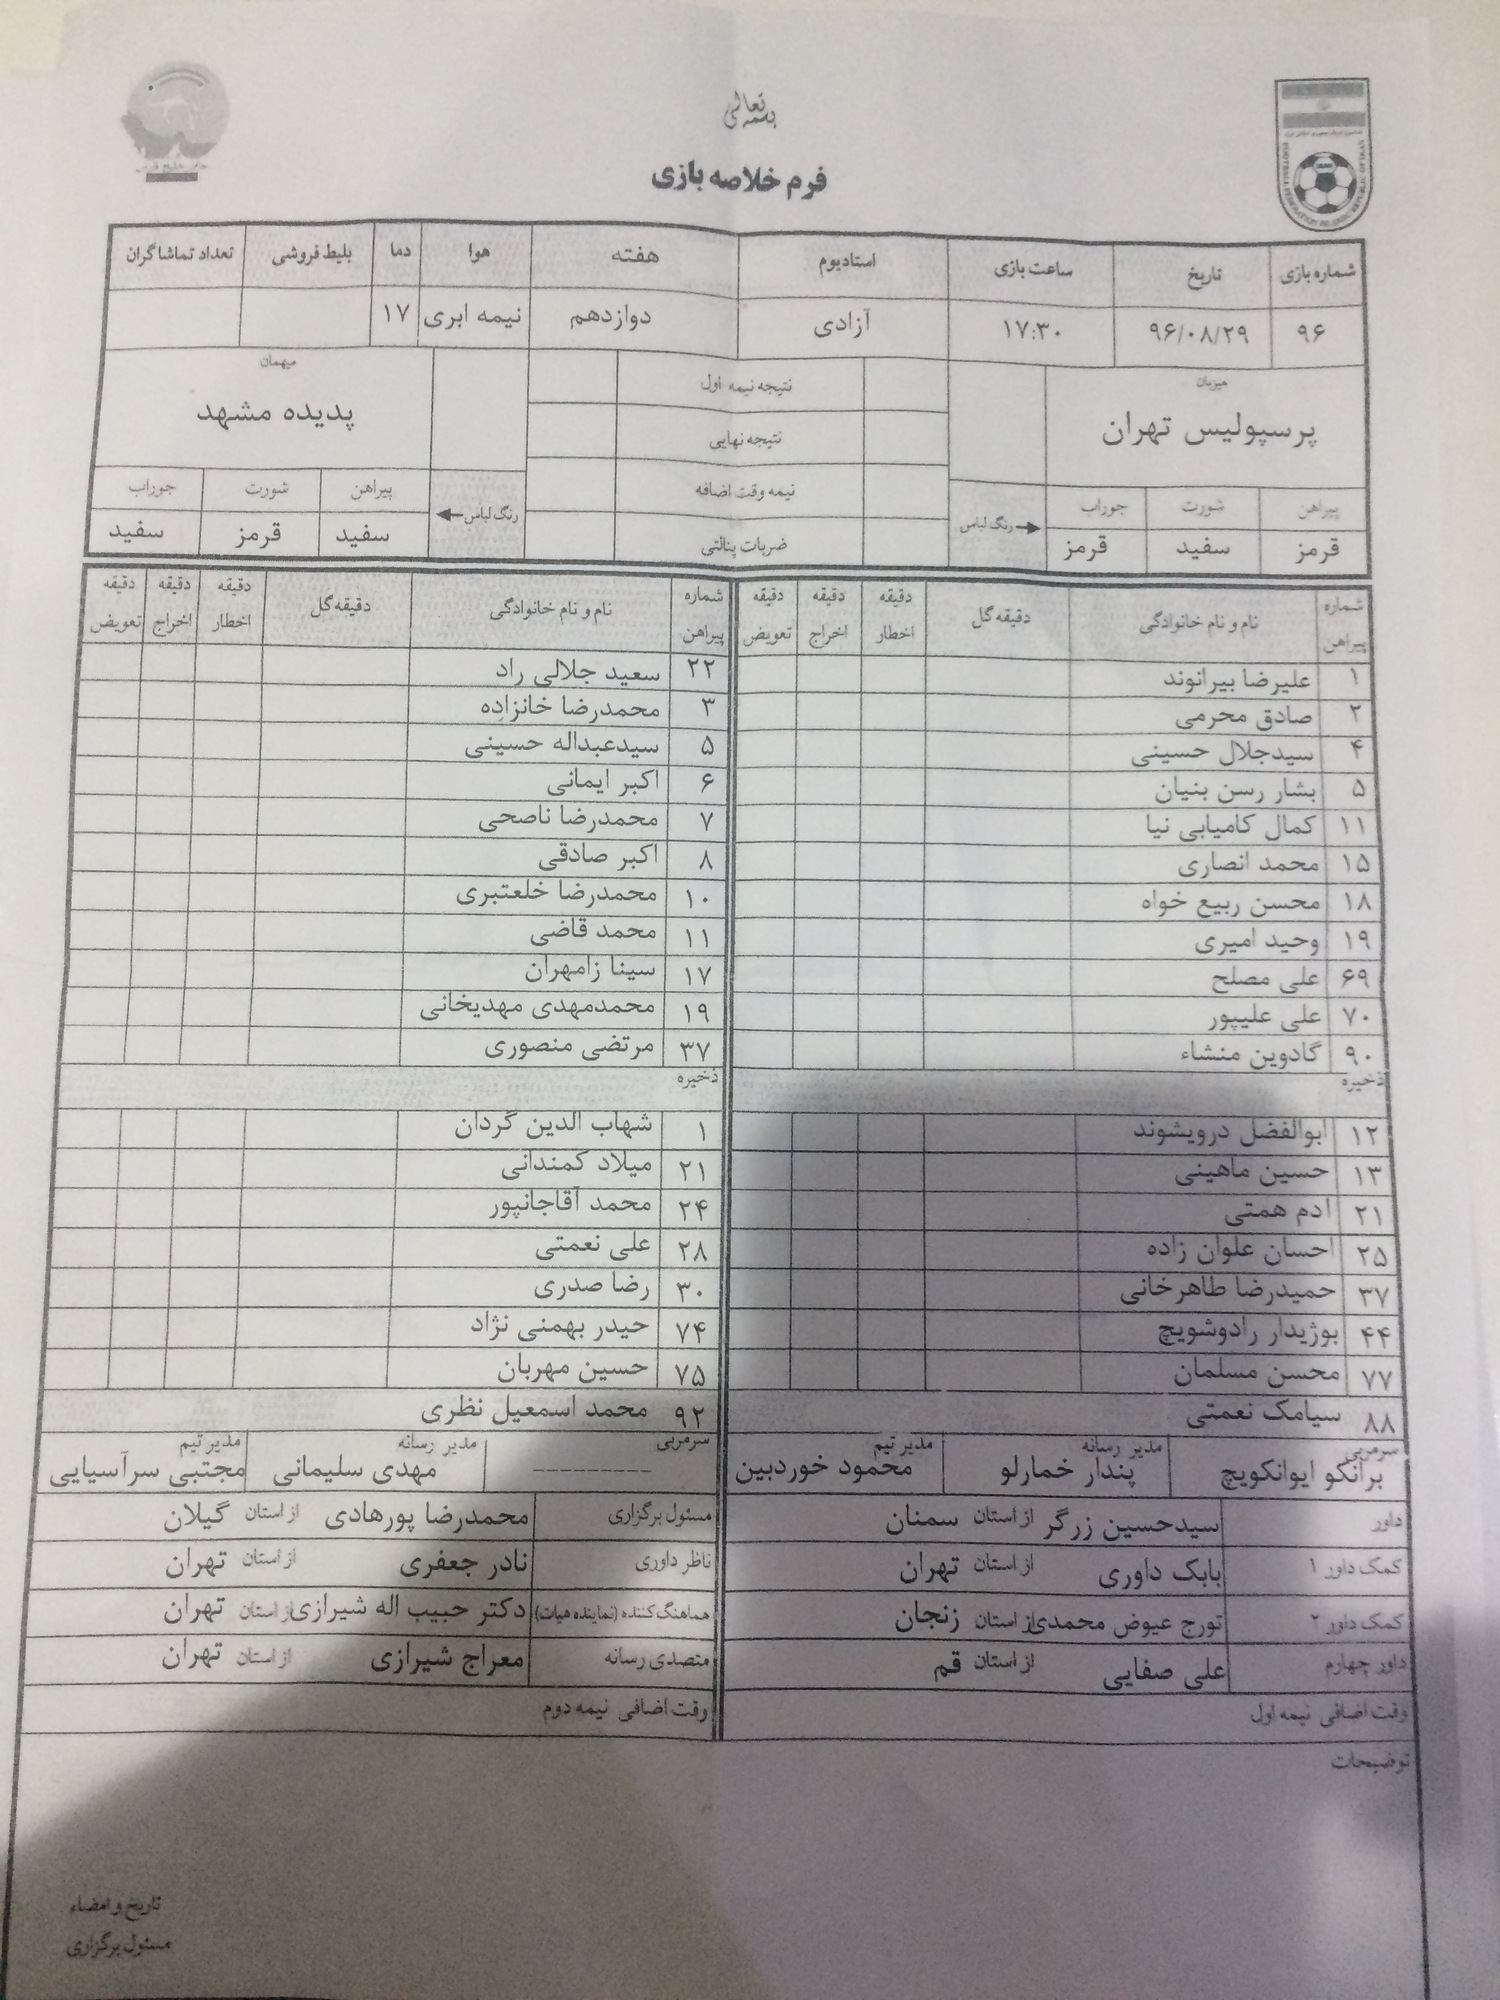 بسمه تعالی
فرم خلاصه بازی
شماره بازی تاریخ ساعت بازی استادیوم هفته هوا دما بلیط فروشی تعداد تماشاگران
۹۶ ۹۶/۰۸/۲۹ ۱۷:۳۰ آزادی دوازدهم نیمه ابری ۱۷
میزبان نتیجه نیمه اول میهمان
پرسپولیس تهران نتیجه نهایی پدیده مشهد
پیراهن شورت جوراب نیمه وقت اضافه پیراهن شورت جوراب
رنگ لباس رنگ لباس
قرمز سفید قرمز ضربات پنالتی سفید قرمز سفید
شماره پیراهن نام و نام خانوادگی دقیقه گل دقیقه اخطار دقیقه اخراج دقیقه تعویض شماره پیراهن نام و نام خانوادگی دقیقه گل دقیقه اخطار دقیقه اخراج دقیقه تعویض
۱ علیرضا بیرانوند ۲۲ سعید جلالی راد
۲ صادق محرمی ۳ محمدرضا خانزاده
۴ سیدجلال حسینی ۵ سیدعبداله حسینی
۵ بشار رسن بنیان ۶ اکبر ایمانی
۱۱ کمال کامیابی نیا ۷ محمدرضا ناصحی
۱۵ محمد انصاری ۸ اکبر صادقی
۱۸ محسن ربیع خواه ۱۰ محمدرضا خلعتبری
۱۹ وحید امیری ۱۱ محمد قاضی
۶۹ علی مصلح ۱۷ سینا زامهران
۷۰ علی علیپور ۱۹ محمدمهدی مهدیخانی
۹۰ گادوین منشاء ۳۷ مرتضی منصوری
ذخیره ذخیره
۱۲ ابوالفضل درویشوند ۱ شهاب الدین گردان
۱۳ حسین ماهینی ۲۱ میلاد کمندانی
۲۱ ادم همتی ۲۴ محمد آقاجانپور
۲۵ احسان علوان زاده ۲۸ علی نعمتی
۳۷ حمیدرضا طاهرخانی ۳۰ رضا صدری
۴۴ بوژیدار رادوشویچ ۷۴ حیدر بهمنی نژاد
۷۷ محسن مسلمان ۷۵ حسین مهربان
۸۸ سیامک نعمتی ۹۲ محمد اسمعیل نظری
سرمربی مدیر رسانه مدیر تیم سرمربی مدیر رسانه مدیر تیم
برانکو ایوانکویچ پندار خمارلو محمود خوردبین ---------- مهدی سلیمانی مجتبی سرآسیایی
داور سیدحسین زرگر از استان سمنان مسئول برگزاری محمدرضا پورهادی از استان گیلان
کمک داور ۱ بابک داوری از استان تهران ناظر داوری نادر جعفری از استان تهران
کمک داور ۲ تورج عیوض محمدی از استان زنجان هماهنگ کننده (نماینده هیات) دکتر حبیب اله شیرازی از استان تهران
داور چهارم علی صفایی از استان قم متصدی رسانه معراج شیرازی از استان تهران
وقت اضافی نیمه اول وقت اضافی نیمه دوم
توضیحات
تاریخ و امضاء
مسئول برگزاری